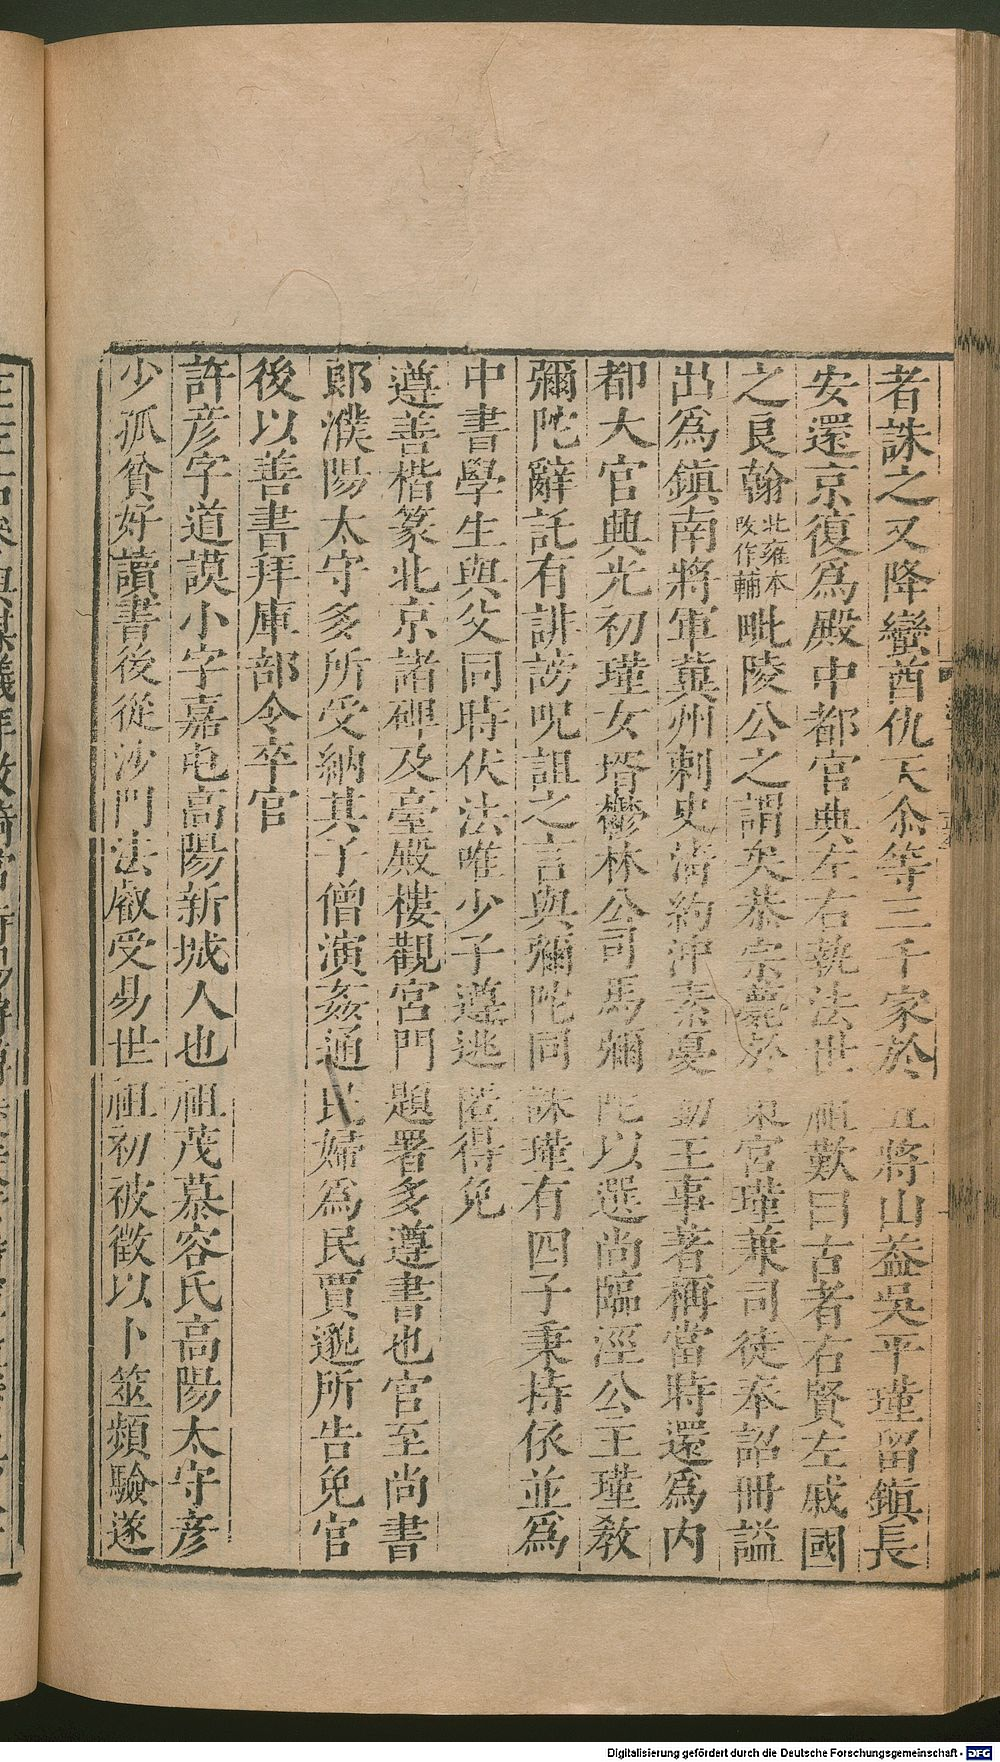 者誅之又降蠻酋仇天尒等三千家於五將山蓋吳平瑾留鎮長
安還京復爲殿中都官典左右執法世祖歎曰古者右賢左戚國
之良翰北雍本改作輔毗陵公之謂矣恭宗薨於東宮瑾兼司徒奉詔冊謚
出爲鎮南將軍兾州刺史清約沖素憂勤王事著稱當時還爲內
都大官興光初瑾女壻鬱林公司馬彌陀以選尚臨涇公主瑾教
彌陀辭託有誹謗呪詛之言與彌陀同誅瑾有四子秉持依並爲
中書學生與父同時伏法唯少子遵逃匿得免
遵善楷篆北京諸碑及臺殿樓觀宮門題署多遵書也官至尚書
郎濮陽太守多所受納其子僧演姦通民婦爲民賈邈所告免官
後以善書拜庫部令卒官
許彦字道謨小字嘉屯高陽新城人也祖茂慕容氏高陽太守彦
少孤貧好讀書後從沙門法叡受易世祖初被徵以卜筮頻驗遂
Digitalisierung gefördert durch die Deutsche Forschungsgemeinschaft - DFG